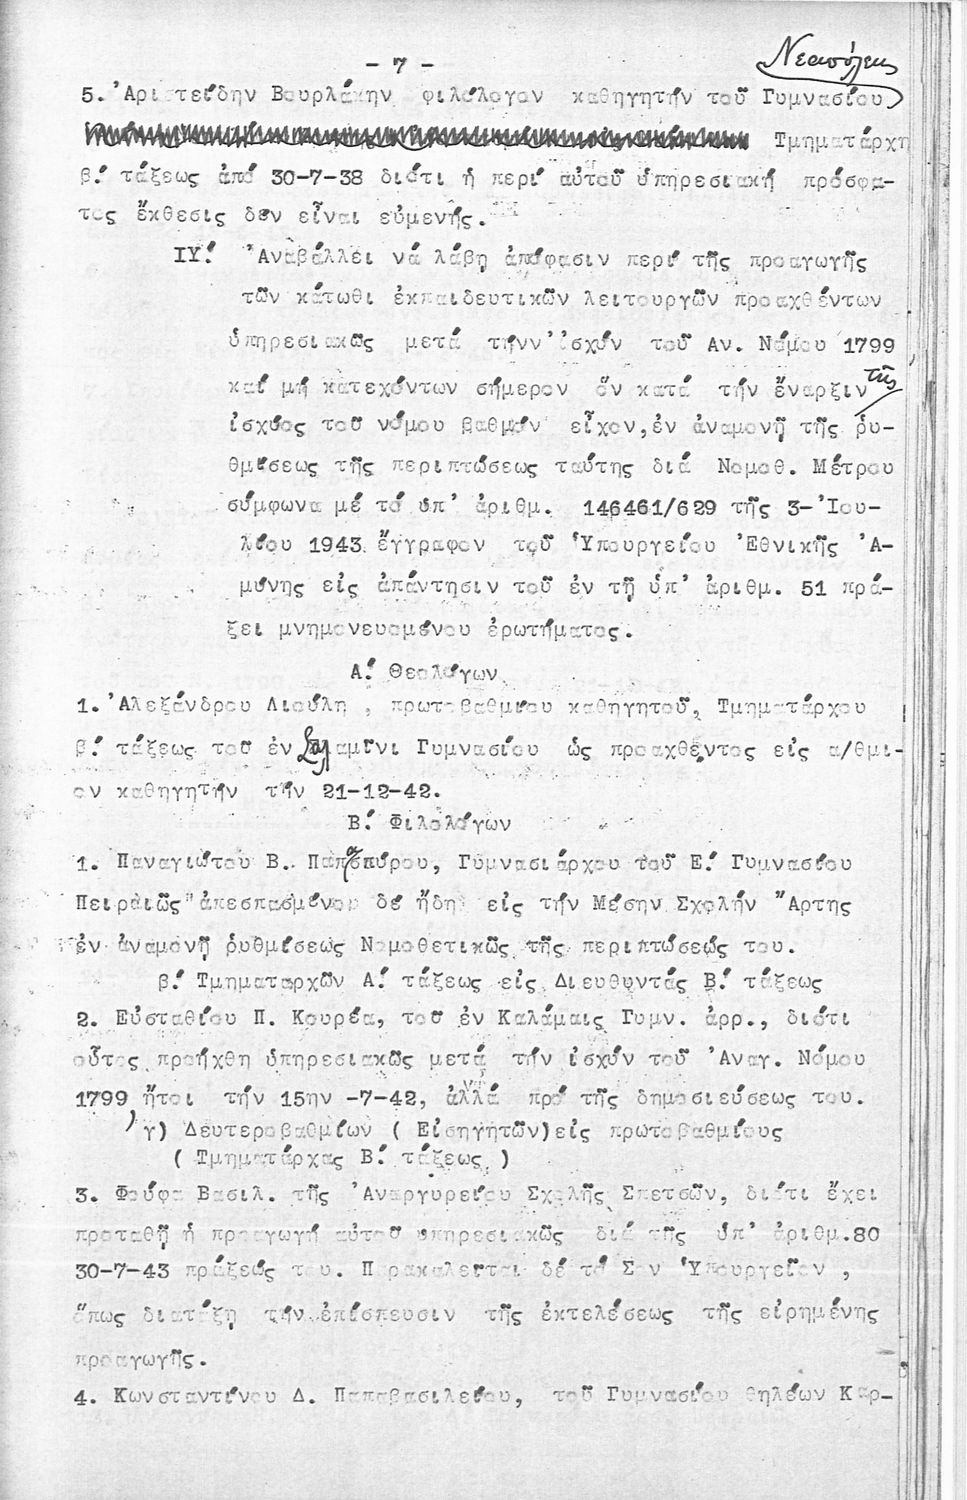 - 7 -
Νεαπόλεως
5.᾿Αριστείδην Βουρλάκην φιλόλογον καθηγητήν τοῦ Γυμνασίου
Τμηματάρχη
β.΄ τάξεως ἀπό 30-7-38 διότι ἡ περί αὐτοῦ ὑπηρεσιακή πρόσφα-
τος ἔκθεσις δέν εἶναι εὐμενής.
ΙΥ.΄ ᾿Αναβάλλει νά λάβῃ ἀπόφασιν περί τῆς προαγωγῆς
τῶν κάτωθι ἐκπαιδευτικῶν λειτουργῶν προαχθέντων
ὑπηρεσιακῶς μετά τήνν᾿ἰσχύν τοῦ Αν. Νόμου 1799
καί μή κατεχόντων σήμερον ὅν κατά τήν ἔναρξιν τῆς
ἰσχύος τοῦ νόμου βαθμόν εἶχον,ἐν ἀναμονῇ τῆς ῥυ-
θμίσεως τῆς περιπτώσεως ταύτης διά Νομοθ. Μέτρου
σύμφωνα μέ τό ὑπ᾿ ἀριθμ. 146461/629 τῆς 3-᾿Ιου-
λίου 1943 ἔγγραφον τοῦ ῾Υπουργείου ᾿Εθνικῆς ᾿Α-
μύνης εἰς ἀπάντησιν τοῦ ἐν τῇ ὑπ᾿ ἀριθμ. 51 πρά-
ξει μνημονευομένου ἐρωτήματος.
Α.΄ Θεολόγων
1.᾿Αλεξάνδρου Λιούλη , πρωτοβαθμίου καθηγητοῦ, Τμηματάρχου
β.΄ τάξεως τοῦ ἐν Σαλαμῖνι Γυμνασίου ὡς προαχθέντος εἰς α/θμι-
ον καθηγητήν τήν 21-12-42.
Β.΄ Φιλολόγων
1. Παναγιώτου Β. Παπασπύρου, Γυμνασιάρχου τοῦ Ε.΄ Γυμνασίου
Πειραιῶς"ἀπεσπασμένου δέ ἤδη εἰς τήν Μέσην Σχολήν ῎Αρτης
ἐν ἀναμονῇ ῥυθμίσεως Νομοθετικῶς τῆς περιπτώσεώς του.
β.΄ Τμηματαρχῶν Α.΄ τάξεως εἰς Διευθυντάς Β.΄ τάξεως
2. Εὐσταθίου Π. Κουρέα, τοῦ ἐν Καλάμαις Γυμν. ἀρρ., διότι
οὗτος προήχθη ὑπηρεσιακῶς μετά τήν ἰσχύν τοῦ ᾿Αναγ. Νόμου
1799 ἤτοι τήν 15ην -7-42, ἀλλά πρό τῆς δημοσιεύσεως του.
γ) Δευτεροβαθμίων ( Εἰσηγητῶν)εἰς πρωτοβαθμίους
( Τμηματάρχας Β.΄ τάξεως )
3. Φούφα Βασιλ. τῆς ᾿Αναργυρείου Σχολῆς Σπετσῶν, διότι ἔχει
προταθῆ ἡ προαγωγή αὐτοῦ ὑπηρεσιακῶς διά τῆς ὑπ᾿ ἀριθμ.80
30-7-43 πράξεώς του. Παρακαλεῖται δέ τό Σον ῾Υπουργεῖον ,
ὅπως διατάξῃ τήν ἐπίσπευσιν τῆς ἐκτελέσεως τῆς εἰρημένης
προαγωγῆς.
4. Κωνσταντίνου Δ. Παπαβασιλείου, τοῦ Γυμνασίου θηλέων Καρ-